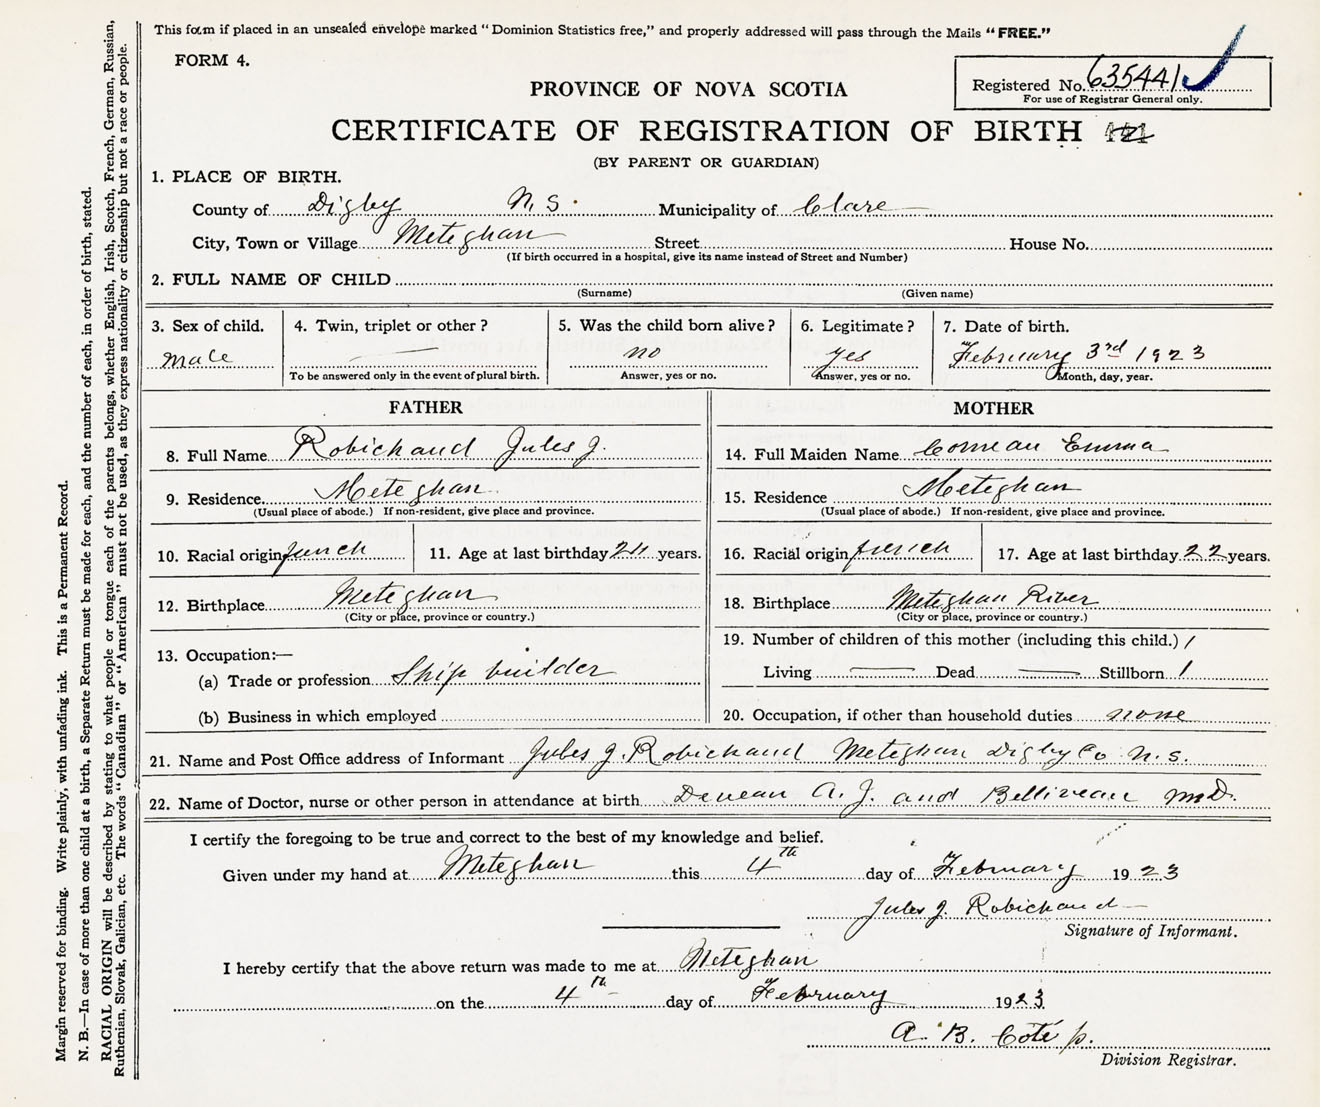 This form if placed in an unsealed envelope marked “Dominion Statistics free,” and properly addressed will pass through the Mails “FREE.”
FORM 4.
Registered No. 635441
For use of Registrar General only.
PROVINCE OF NOVA SCOTIA
CERTIFICATE OF REGISTRATION OF BIRTH
(BY PARENT OR GUARDIAN)
1. PLACE OF BIRTH.
County of Digby N.S. Municipality of Clare
City, Town or Village Meteghan Street House No.
(If birth occurred in a hospital, give its name instead of Street and Number)
2. FULL NAME OF CHILD
(Surname) (Given name)
3. Sex of child. 4. Twin, triplet or other? 5. Was the child born alive? 6. Legitimate? 7. Date of birth.
male no yes February 3rd 1923
To be answered only in the event of plural birth. Answer, yes or no. Answer, yes or no. Month, day, year.
FATHER
8. Full Name Robichaud Jules J.
9. Residence Meteghan
(Usual place of abode.) If non-resident, give place and province.
10. Racial origin french 11. Age at last birthday 24 years.
12. Birthplace Meteghan
(City or place, province or country.)
13. Occupation:—
(a) Trade or profession Ship builder
(b) Business in which employed
MOTHER
14. Full Maiden Name Comeau Emma
15. Residence Meteghan
(Usual place of abode.) If non-resident, give place and province.
16. Racial origin french 17. Age at last birthday 22 years.
18. Birthplace Meteghan River
(City or place, province or country.)
19. Number of children of this mother (including this child.) 1
Living Dead Stillborn 1
20. Occupation, if other than household duties none
21. Name and Post Office address of Informant Jules J. Robichaud Meteghan Digby Co N.S.
22. Name of Doctor, nurse or other person in attendance at birth Deveau A. J. and Belliveau M.D.
I certify the foregoing to be true and correct to the best of my knowledge and belief.
Given under my hand at Meteghan this 4th day of February 1923
Jules J. Robichaud
Signature of Informant.
I hereby certify that the above return was made to me at Meteghan
on the 4th day of February 1923
A. B. Coté p.
Division Registrar.
Margin reserved for binding. Write plainly, with unfading ink. This is a Permanent Record.
N. B.—In case of more than one child at a birth, a Separate Return must be made for each, and the number of each, in order of birth, stated.
RACIAL ORIGIN will be described by stating to what people or tongue each of the parents belongs, whether English, Irish, Scotch, French, German, Russian,
Ruthenian, Slovak, Galician, etc. The words “Canadian” or “American” must not be used, as they express nationality or citizenship but not a race or people.